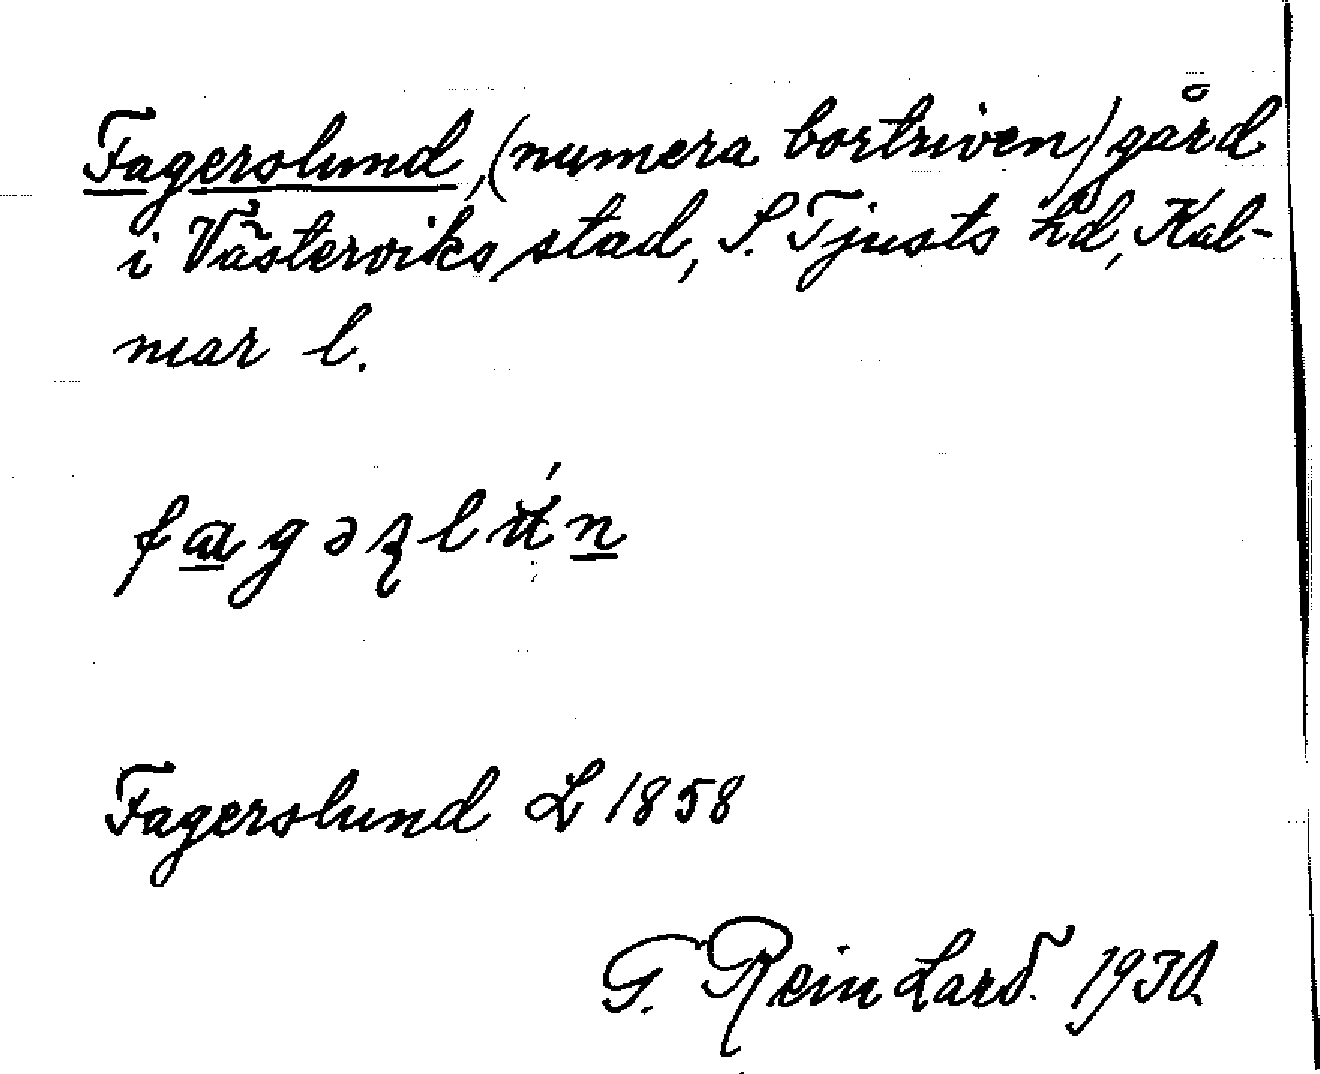 Fagerslund, (numera bortriven) gård
i Västerviks stad, S. Tjusts hd, Kal-
mar l.
fagəʐlún
Fagerslund L 1858
T. Reinhard. 1930.